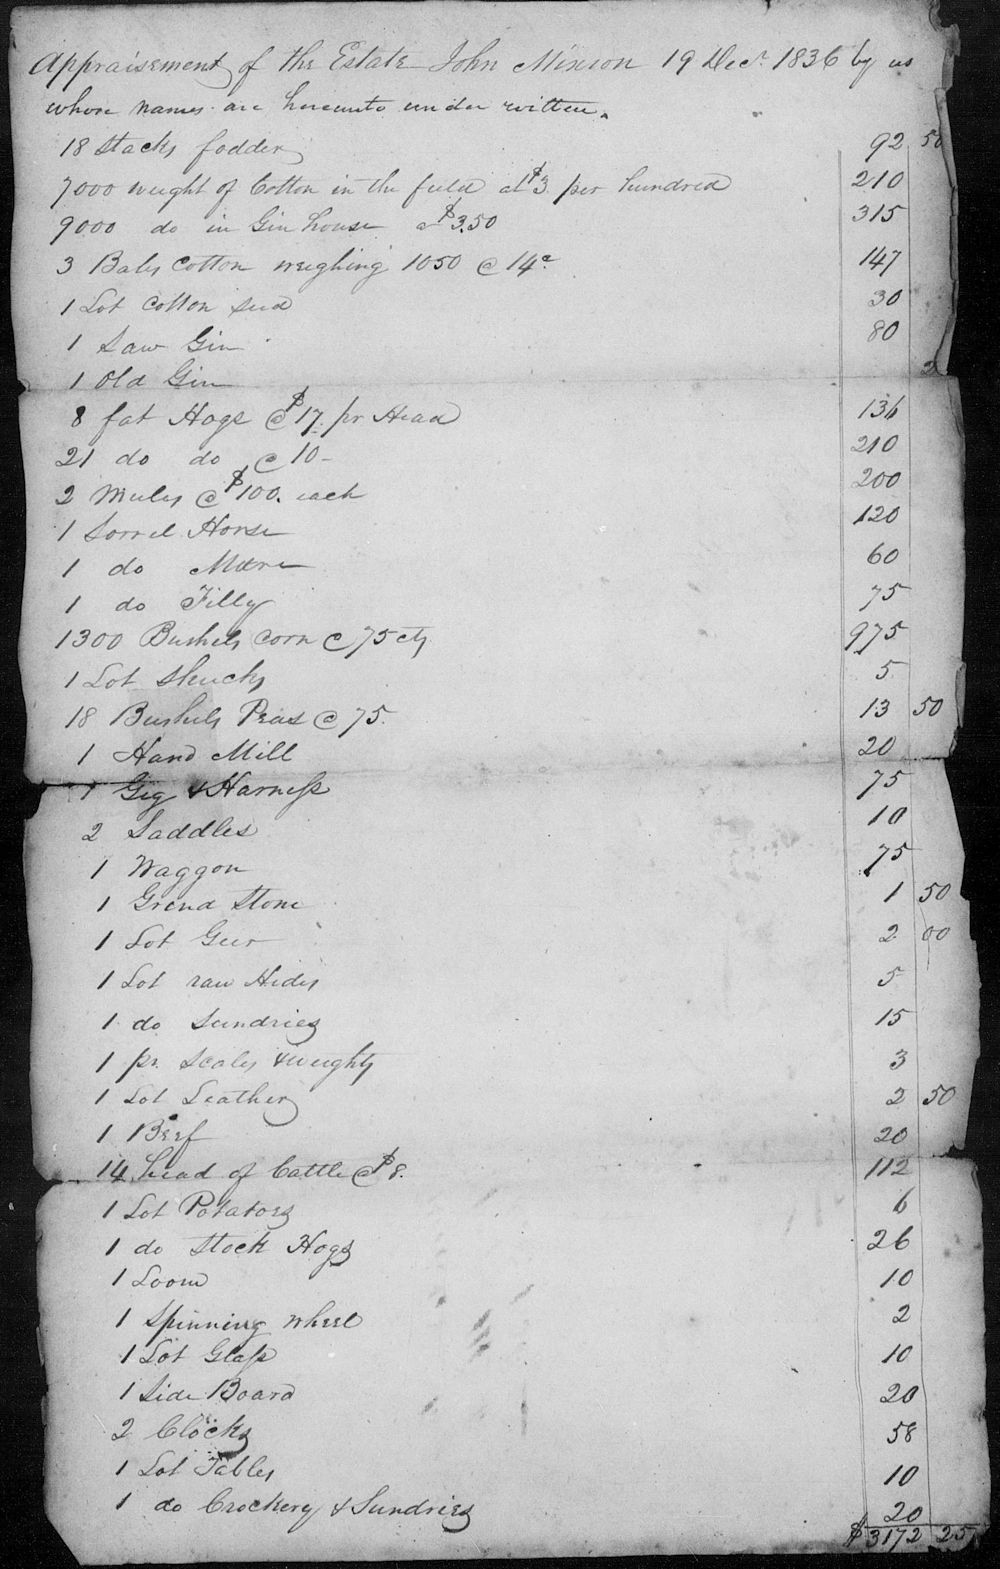 Appraisement of the Estate John Minson 19 Decr. 1836 by us
whose names are hereunto under written.
18 Stacks fodder 92 50
7000 weight of Cotton in the field at $3 per hundred 210
9000 do in Gin house at $3.50 315
3 Bales Cotton weighing 1050 @ 14c 147
1 Lot Cotton seed 30
1 Saw Gin 80
1 Old Gin
8 fat Hogs @ $17. pr Head 136
21 do do @ 10- 210
2 Mules @ $100. each 200
1 Sorrel Horse 120
1 do Mare 60
1 do Filly 75
1300 Bushels Corn @ 75 cts 975
1 Lot Shucks 5
18 Bushels Peas @ 75. 13 50
1 Hand Mill 20
1 Gig & Harness 75
2 Saddles 10
1 Waggon 75
1 Grind Stone 1 50
1 Lot Geer 2 00
1 Lot raw Hides 5
1 do Sundries 15
1 pr. Scales & weights 3
1 Lot Leather 2 50
1 Beef 20
14 head of Cattle @ $8. 112
1 Lot Potatoes 6
1 do Stock Hogs 26
1 Loom 10
1 Spinning wheel 2
1 Lot Glass 10
1 Side Board 20
2 Clocks 58
1 Lot Tables 10
1 do Crockery & Sundries 20
$3172 25